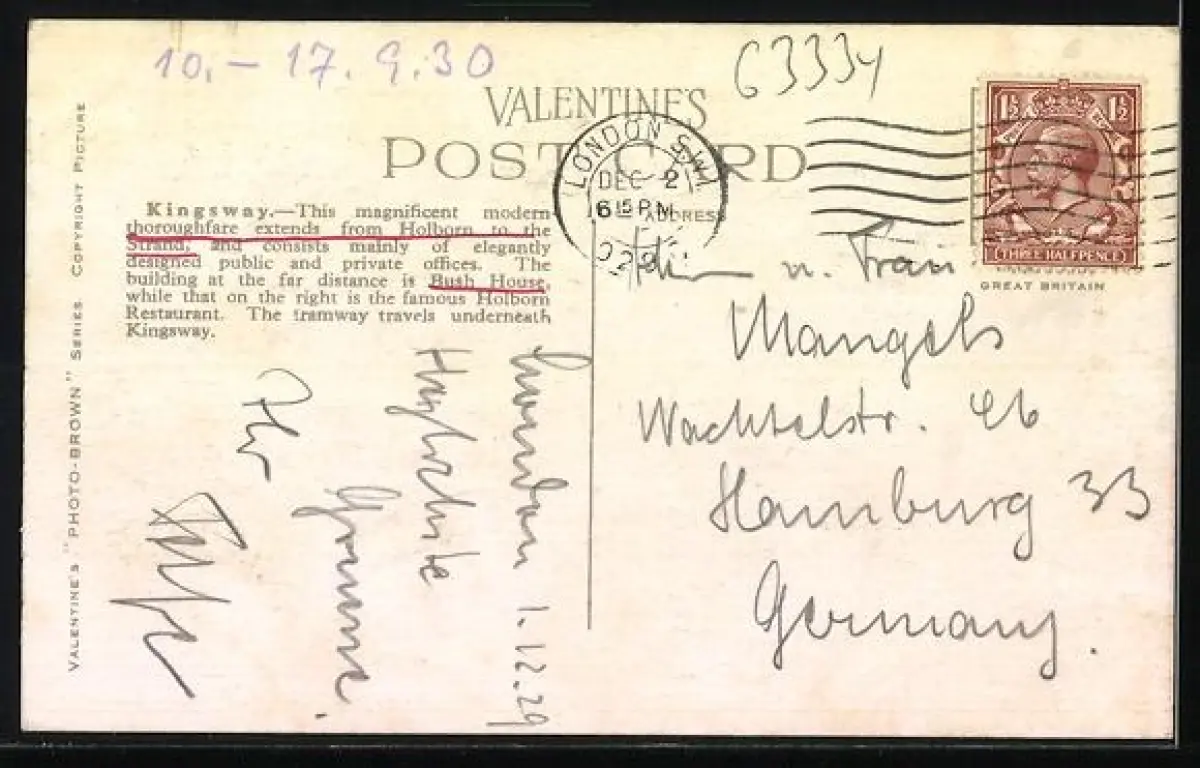 10.- 17. 9. 30
63334
VALENTINE'S
POST CARD
LONDON S.W.1
DEC 2
6 15 PM
ADDRESS
1½ 1½
THREE HALFPENCE
GREAT BRITAIN
Kingsway.—This magnificent modern
thoroughfare extends from Holborn to the
Strand, and consists mainly of elegantly
designed public and private offices. The
building at the far distance is Bush House,
while that on the right is the famous Holborn
Restaurant. The tramway travels underneath
Kingsway.
VALENTINE'S "PHOTO-BROWN" SERIES COPYRIGHT PICTURE
London 1.12.29
Herzlichste
Grüsse.
Ihr
u. Frau
Mangels
Wachtelstr. 46
Hamburg 33
Germany.